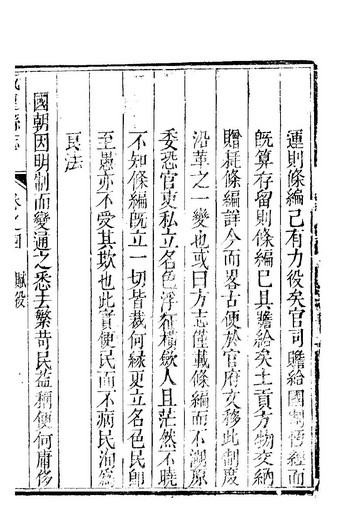 運則條編已有力役矣官司贍給國制有經而
既算存留則條編已具贍給矣土貢方物交納
贈耗條編詳今而畧古便於官府文移此制度
沿革之一變也或曰方志僅載條編而不溯原
委恐官吏私立名色浮征橫斂人且茫然不曉
不知條編既立一切皆裁何緣更立名色民卽
至愚亦不愛其欺也此實便民而不病民洵爲
良法
國朝因明制而變通之悉去繁苛民益稱便何庸侈
卷之四 賦役